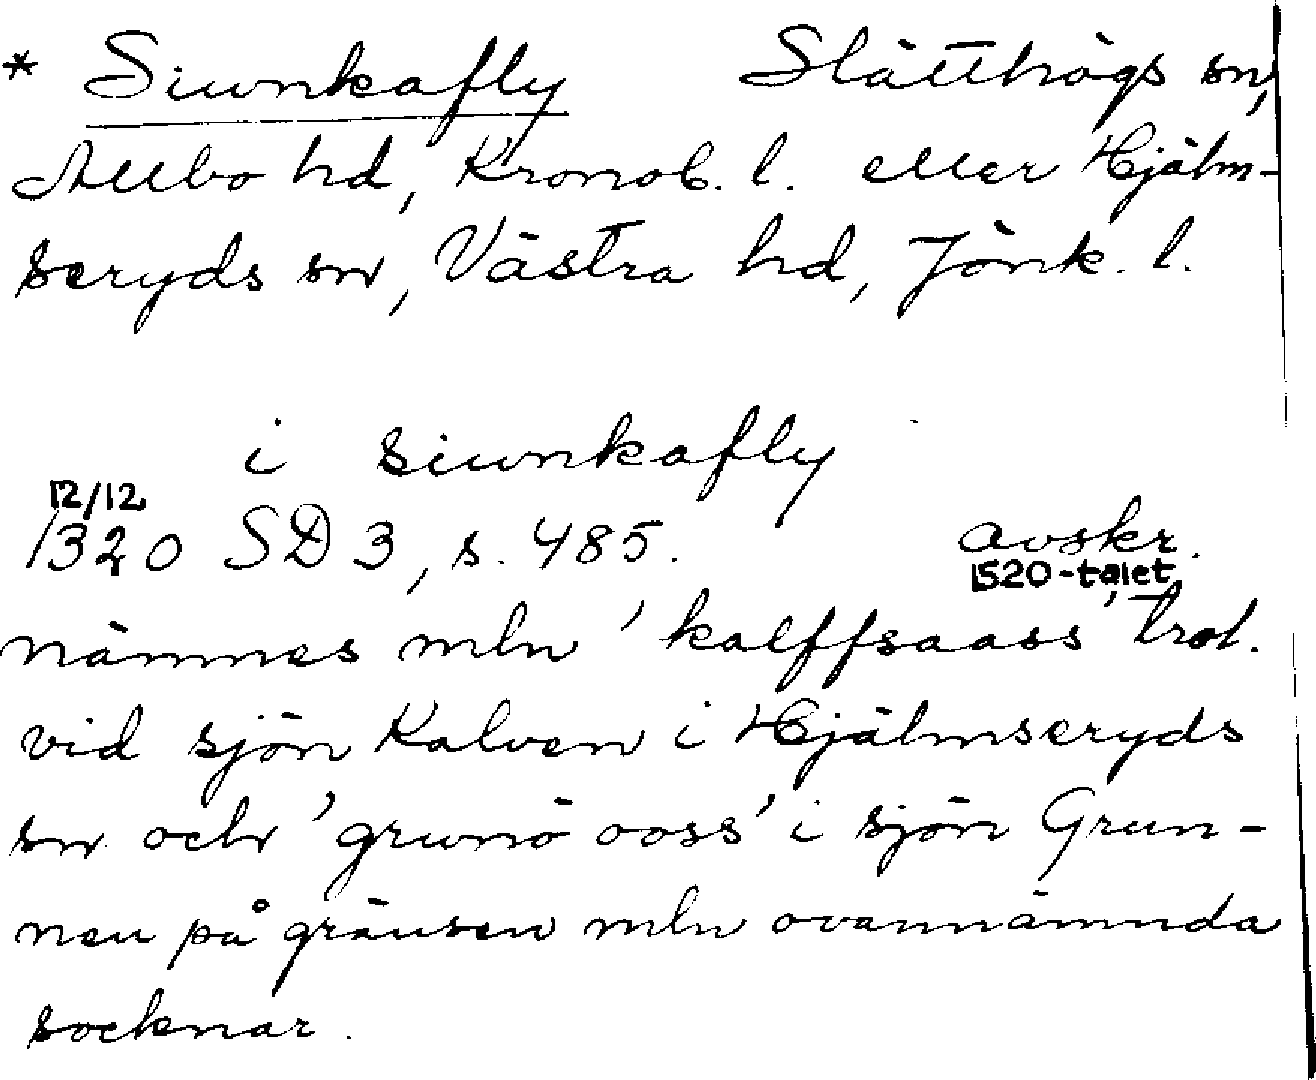 * Siunkafly Slätthögs sn,
Allbo hd, Kronob. l. eller Hjälm-
seryds sn, Västra hd, Jönk. l.
i siunkafly
12/12
1320 SD 3, s. 485. avskr.
1520-talet
nämnes mln 'kalffsaass' trol.
vid sjön Kalven i Hjälmseryds
sn och 'grunö ooss' i sjön Grun-
nen på gränsen mln ovannämnda
socknar.